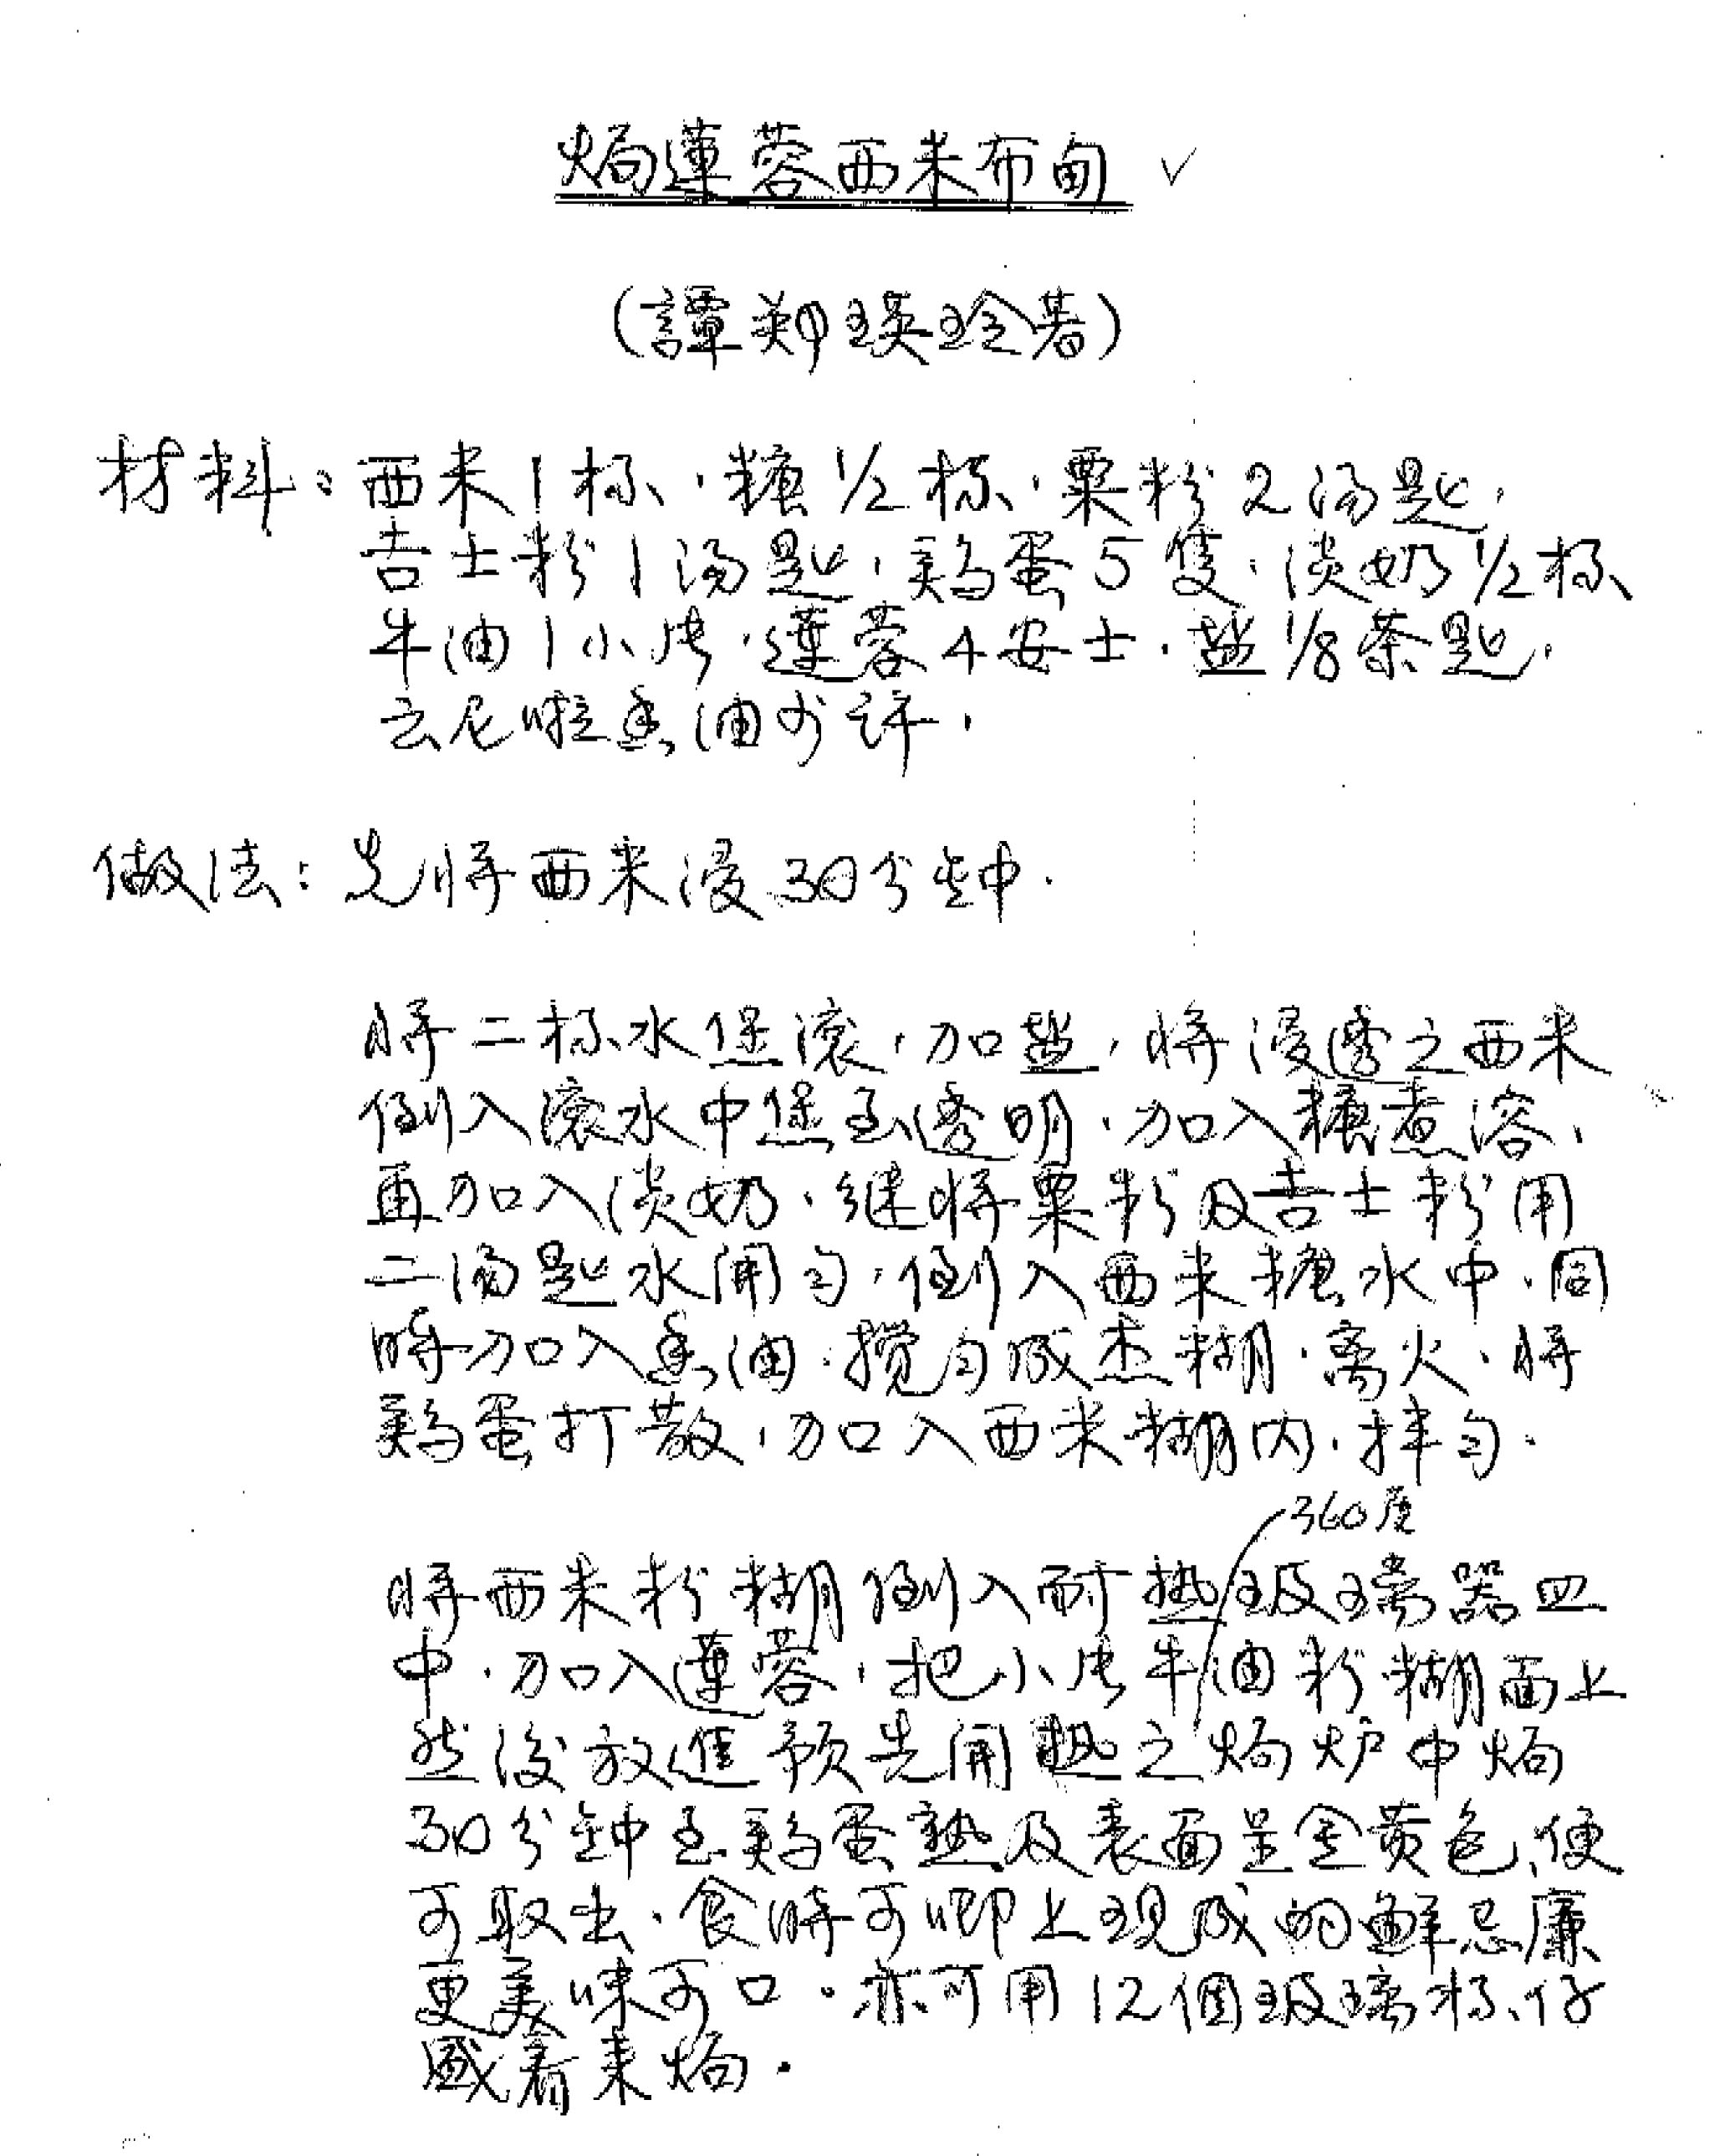 焗蓮蓉西米布甸 ✓
(譚鄭瑛玲著)
材料：西米1杯．糖1/2杯．粟粉2湯匙．
吉士粉1湯匙．鷄蛋5隻．淡奶1/2杯
牛油1小片．蓮蓉4安士．盐1/8茶匙．
云尼啦香油少許．
做法：先將西米浸30分鈡．
將二杯水煲滾，加盐，將浸透之西米
倒入滾水中煲至透明．加入糖煮溶．
再加入淡奶．继將粟粉及吉士粉用
二湯匙水開匀．倒入西米糖水中．同
時加入香油．攪匀成杰糊．离火．將
鷄蛋打散，加入西米糊内．拌匀．
360度
將西米粉糊倒入耐热玻璃器皿
中．加入蓮蓉．把小片牛油粉糊面上
然後放進預先開热之焗炉中焗
30分鈡至鷄蛋熟及表面呈金黄色，便
可取出．食時可唧上現成的鮮忌廉
更美味可口。亦可用12個玻璃杯仔
盛着来焗．